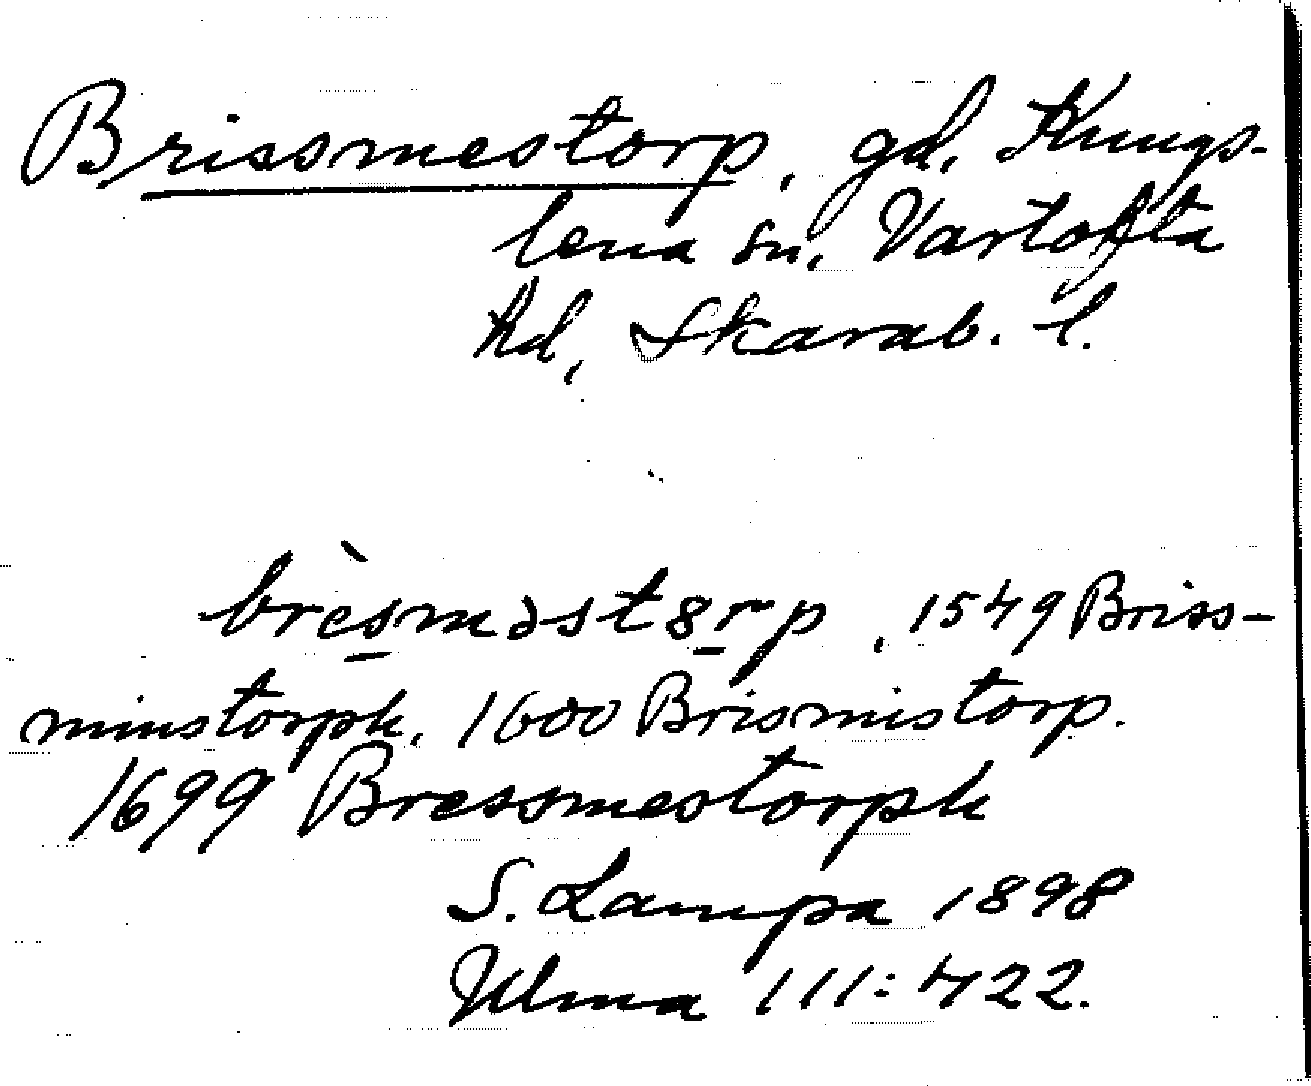 Brissmestorp, gd, Kungs-
lena sn, Vartofta
hd, Skarab. l.
brèsməst8rp, 1549 Briss-
minstorph, 1600 Brismistorp.
1699 Bressmestorph
S. Lampa 1898
Ulma 111:422.